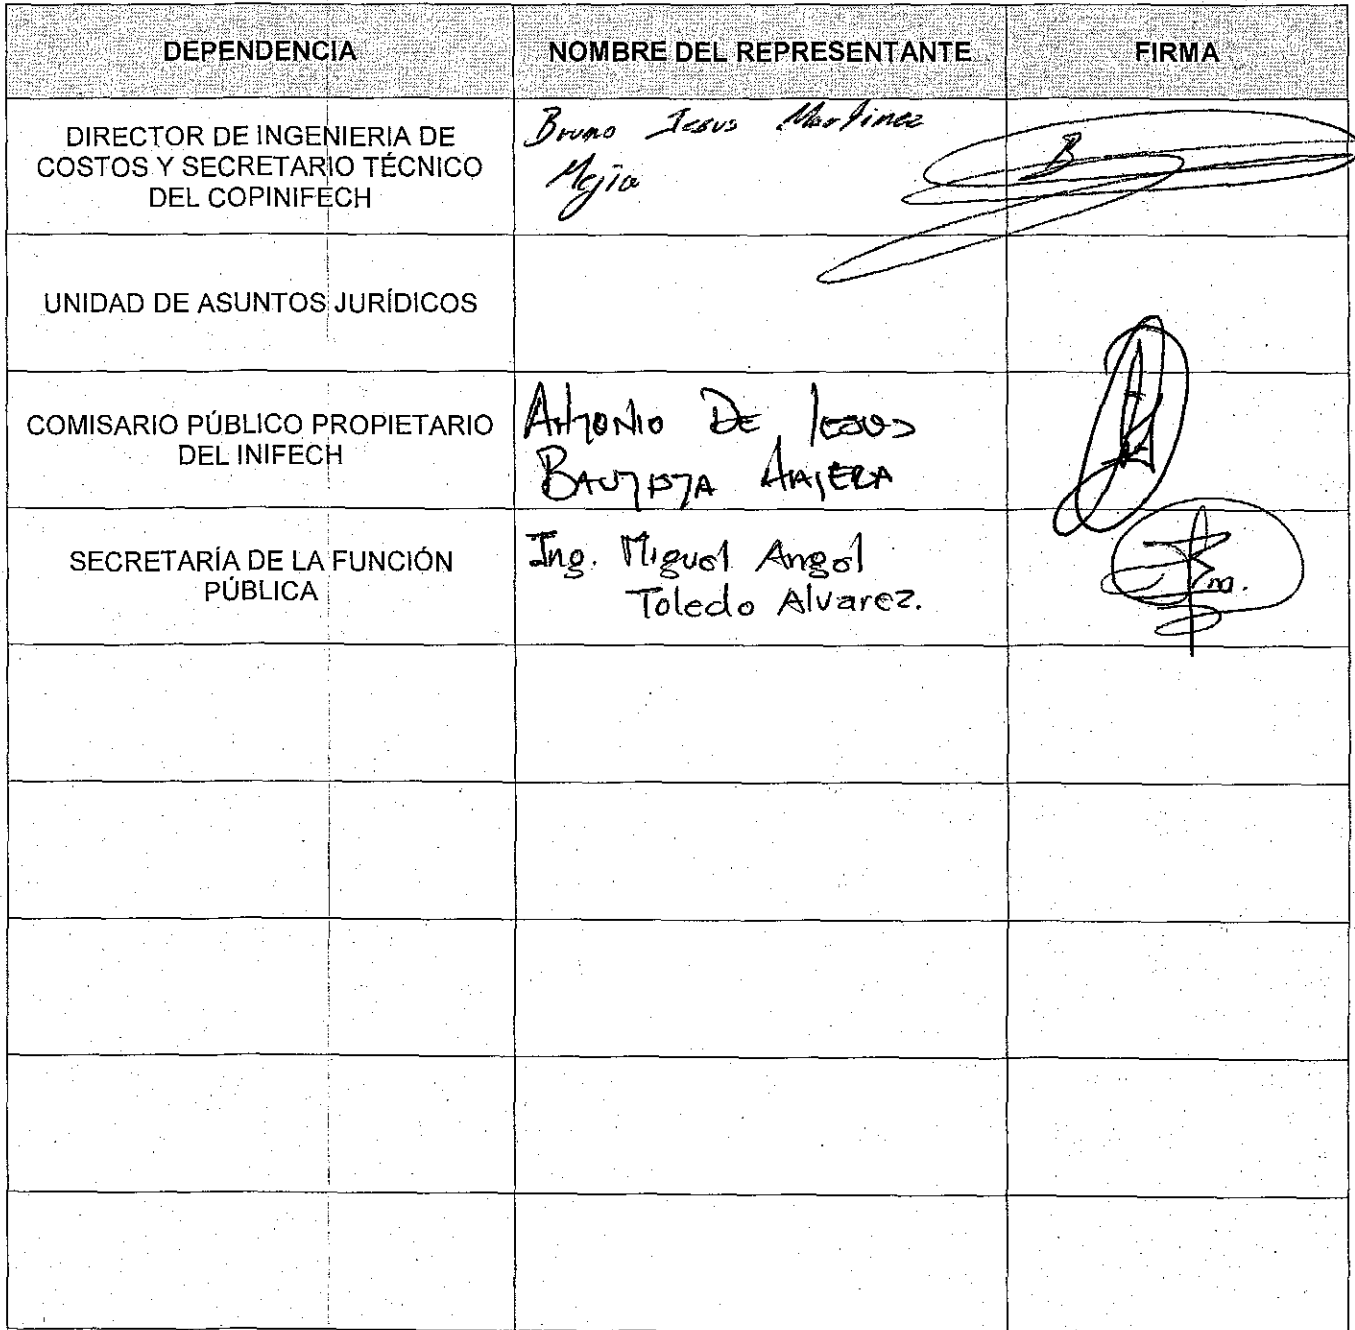 DEPENDENCIA NOMBRE DEL REPRESENTANTE FIRMA
DIRECTOR DE INGENIERIA DE
COSTOS Y SECRETARIO TÉCNICO
DEL COPINIFECH
Bruno Jesus Martinez
Mejía
UNIDAD DE ASUNTOS JURÍDICOS
COMISARIO PÚBLICO PROPIETARIO
DEL INIFECH
Antonio DE Jesus
BAUTISTA
SECRETARÍA DE LA FUNCIÓN
PÚBLICA
Ing. Miguel Angel
Toledo Alvarez.